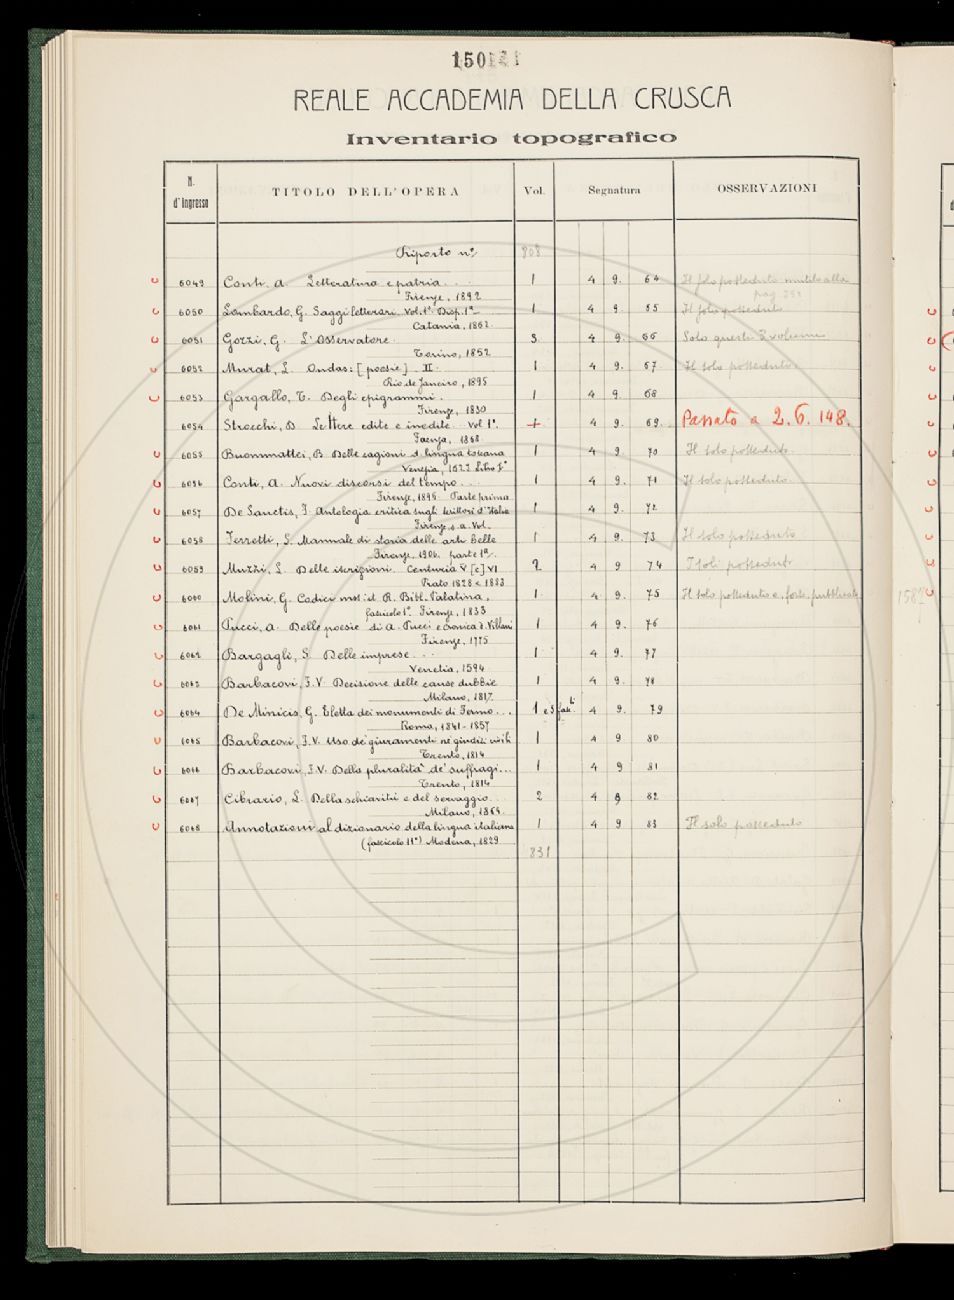 150
REALE ACCADEMIA DELLA CRUSCA
Inventario topografico
N. d'ingresso TITOLO DELL'OPERA Vol. Segnatura OSSERVAZIONI
Riporto nº 808
6049 Conti, A. Letteratura e patria . . . 1 4 9. 64 Il solo posseduto mutilo alla
Firenze, 1892 pag.
6050 Lombardo, G. Saggi letterari. Vol. 1º Disp. 1ª 1 4 9 65 Il solo posseduto
Catania, 1862.
6051 Gozzi, G. L'Osservatore. 3 4 9. 66 Solo questi 3 volumi
Torino, 1852
6052 Murat, L. Ondas: [poesie] II. 1 4 9. 67. Il solo posseduto
Rio de Janeiro, 1895
6053 Gargallo, T. Degli epigrammi. 1 4 9 68
Firenze, 1830
6054 Strocchi, D. Lettere edite e inedite. Vol 1º. 4 9. 69. Passato a 2. 6. 148.
Faenza, 1868
6055 Buonmattei, B. Delle cagioni d. lingua toscana 1 4 9. 70 Il solo posseduto
Venezia, 1623 Libro Iº
6056 Conti, A. Nuovi discorsi del tempo . . . 1 4 9. 71 Il solo posseduto
Firenze, 1896 Parte prima
6057 De Sanctis, F. Antologia critica sugli scrittori d'Italia 1 4 9. 72
Firenze, s.a. Vol.
6058 Ferretti, S. Manuale di storia delle arti belle 1 4 9. 73 Il solo posseduto
Firenze, 1906. parte 1ª.
6059 Muzzi, L. Delle iscrizioni. Centuria V [e] VI 2 4 9 74 I soli posseduti
Prato 1828 e 1833
6060 Molini, G. Codici mss. d. R. Bibl. Palatina, 1. 4 9. 75 Il solo posseduto e, forse, pubblicato
fascicolo 1º. Firenze, 1833
6061 Pucci, A. Delle poesie di A. Pucci e Cronica d. Villani 1 4 9. 76
Firenze, 1775
6062 Bargagli, S. Delle imprese . . . 1 4 9. 77
Venetia, 1594
6063 Barbacovi, F.V. Decisione delle cause dubbie 1 4 9. 78
Milano, 1817.
6064 De Minicis, G. Eletta dei monumenti di Fermo . . . 1 e 3 fasc.li 4 9. 79
Roma, 1841-1857
6065 Barbacovi, F.V. Uso de' giuramenti ne' giudizi civili 1 4 9 80
Trento, 1814
6066 Barbacovi, F.V. Della pluralità de' suffragi . . . 1 4 9 81
Trento, 1814
6067 Cibrario, L. Della schiavitù e del servaggio . . . 2 4 9 82
Milano, 1868.
6068 Annotazioni al dizionario della lingua italiana 1 4 9 83 Il solo posseduto
(fascicolo 11º) Modena, 1829
831